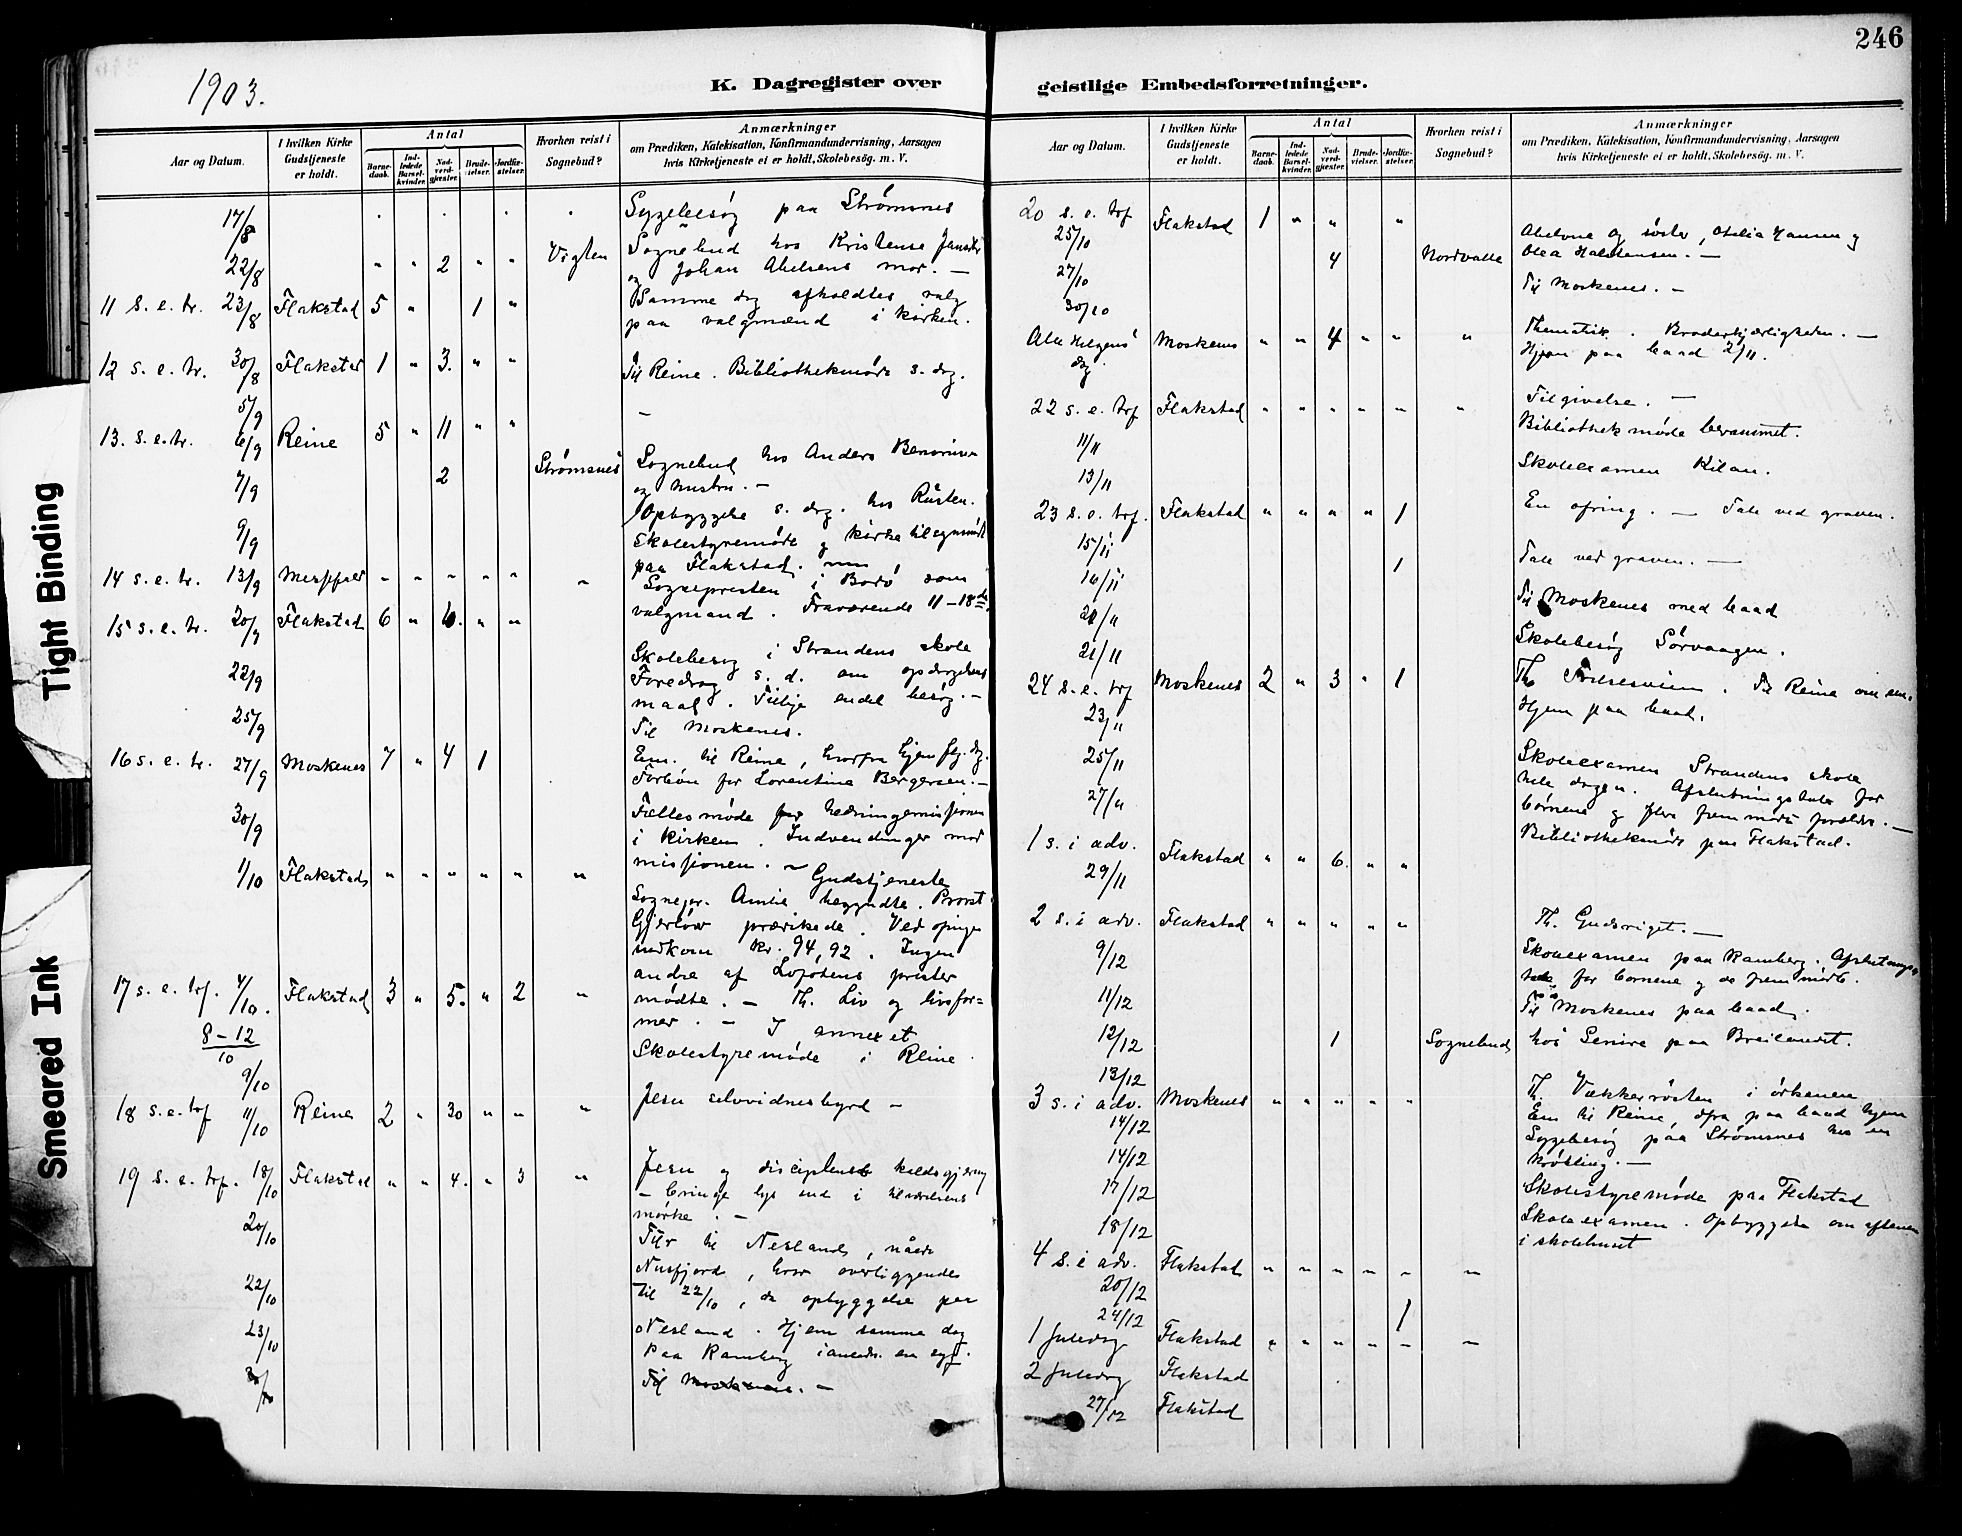 246
1903.
K. Dagregister over
Aar og Datum.
I hvilken Kirke Gudstjeneste er holdt.
Antal
Barne-daab.
Ind-ledede Barsel-kvinder.
Nad-verd-gjæster.
Brude-vielser.
Jordfæ-stelser.
Hvorhen reist i Sognebud?
Anmærkninger
om Prædiken, Katekisation, Konfirmandundervisning, Aarsagen
hvis Kirketjeneste ei er holdt, Skolebesøg. m. V.
17/8 Sygebesøg paa Strømsnes
22/8 " " 2 " " Vigten Sognebud hos Kristense
og Johan Abelsens mor. —
11 s. e. tr. 23/8 Flakstad 5 " 1 " Samme dag afholdtes valg
paa valgmænd i kirken.
12 s. e. tr. 30/8 Flakstad 1 " 3. " "
5/9 Til Reine. Bibliothekmøde s. dag.
13. s. e. tr. 6/9 Reine 5 " 11 " " —
7/9 2 Strømsnes Sognebud hos Anders
og hustru. —
Opbyggelse s. dag. hos
9/9 Skolestyremøde og kirketilsynsmøde
paa Flakstad.
14 s. e. tr. 13/9 Messefald " " " " " " Sognepresten i Bodø som
valgmand. Fraværende 11–18de
15 s. e. tr. 20/9 Flakstad 6 " 6. " "
22/9 Skolebesøg i Strandens skole
Foredrag s. d. om opdragelses
maal. Tillige endel besøg. —
25/9 Til Moskenes.
16 s. e. tr. 27/9 Moskenes 7 " 4 1 Em. til Reine, hvorfra hjem flg. dg.
Forbøn for Lorentine Bergersen. —
30/9 Fællesmøde for hedningemissionen
i kirken. Indvendinger mod
missionen. —
1/10 Flakstad " " " " " " Gudstjeneste
Sognepr. Amlie begyndte. Provst
Gjerløw prædikede. Ved ofring
indkom kr. 94,92. Ingen
andre af Lofotens prester
mødte. —
17 s. e. trf. 4/10. Flakstad 3 " 5. " 2 " Th. Liv og livsfor=
mer. —
8–12/10 I annexet
9/10 Skolestyremøde i Reine
18 s. e. trf 11/10 Reine 2 " 30 " " " Jesu selvvidnesbyrd —
19 s. e. trf. 18/10 Flakstad " " 4. " 3 " Jesu og disciplenes kaldsgjerning
— bringe lys ind i tilværelsens
mørke. —
20/10 Tur til Nesland, nåede
Nusfjord, hvor overliggendes
22/10 til 22/10, da opbyggelse paa
Nesland. Hjem samme dag
23/10 Paa Ramberg i anledn. en syg.
Til Moskenes. —
geistlige Embedsforretninger.
Aar og Datum.
I hvilken Kirke Gudstjeneste er holdt.
Antal
Barne-daab.
Ind-ledede Barsel-kvinder.
Nad-verd-gjæster.
Brude-vielser.
Jordfæ-stelser.
Hvorhen reist i Sognebud?
Anmærkninger
om Prædiken, Katekisation, Konfirmandundervisning, Aarsagen
hvis Kirketjeneste ei er holdt, Skolebesøg. m. V.
20 s. e. trf 25/10 Flakstad 1 " " "
27/10 4 Nordvalle og søster, Otelia Hansen og
Olea Halstensen. —
30/10 Til Moskenes. —
Alle Helgens dag. Moskenes " " 4 " " " Thematik. Broderkjærligheden. —
Hjem paa baad 2/11.
22 s. e. trf Flakstad " " " " " " Tilgivelse. —
11/11 Bibliothekmøde berammet.
13/11 Skoleexamen Kilan.
23 s. e. trf. 15/11 Flakstad " " " " 1 En ofring. — Tale ved graven.
16/11 1 Tale ved graven. —
20/11 Til Moskenes med baad
21/11 Skolebesøg Sørvaagen.
24 s. e. trf Moskenes 2 " 3 " 1 Th. Til Reine om em.
23/11 Hjem paa baad.
25/11 Skoleexamen Strandens skole
hele dagen. Afslutningstale for
børnene og flere fremmødte forældre. —
27/11 Bibliothekmøde paa Flakstad.
1 s. i adv. 29/11 Flakstad " " 6. " "
2 s. i adv. Flakstad " " " " " Th. Gudsriget. —
9/12 Skoleexamen paa Ramberg. Afslutnings
tale for børnene og de fremmødte.
11/12 Til Moskenes paa baad.
12/12 1 Sognebud hos paa Breilandet.
13/12
3 s. i adv. Moskenes " " " " " Th. Vækkerrøsten i ørkenen
14/12 Em til Reine, dfra paa baad hjem
14/12 Sygebesøg paa Strømsnes hos en
17/12 Skolestyremøde paa Flakstad
18/12 Skoleexamen. Opbyggelse om aftenen
i skolehuset
4 s. i adv. 20/12 Flakstad " " " " " "
24/12 1
1 Juledag Flakstad " " " " " "
2 Juledag Flakstad
27/12 Flakstad
Tight Binding
Smeared Ink